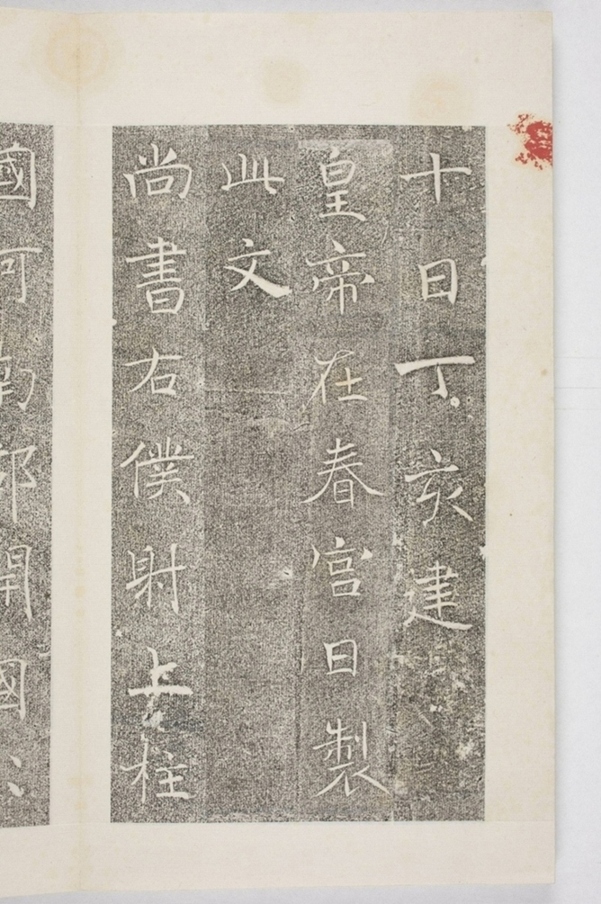 十日丁亥建
皇帝在春宮日製
此文
尚書右僕射上柱
國河南郡開國